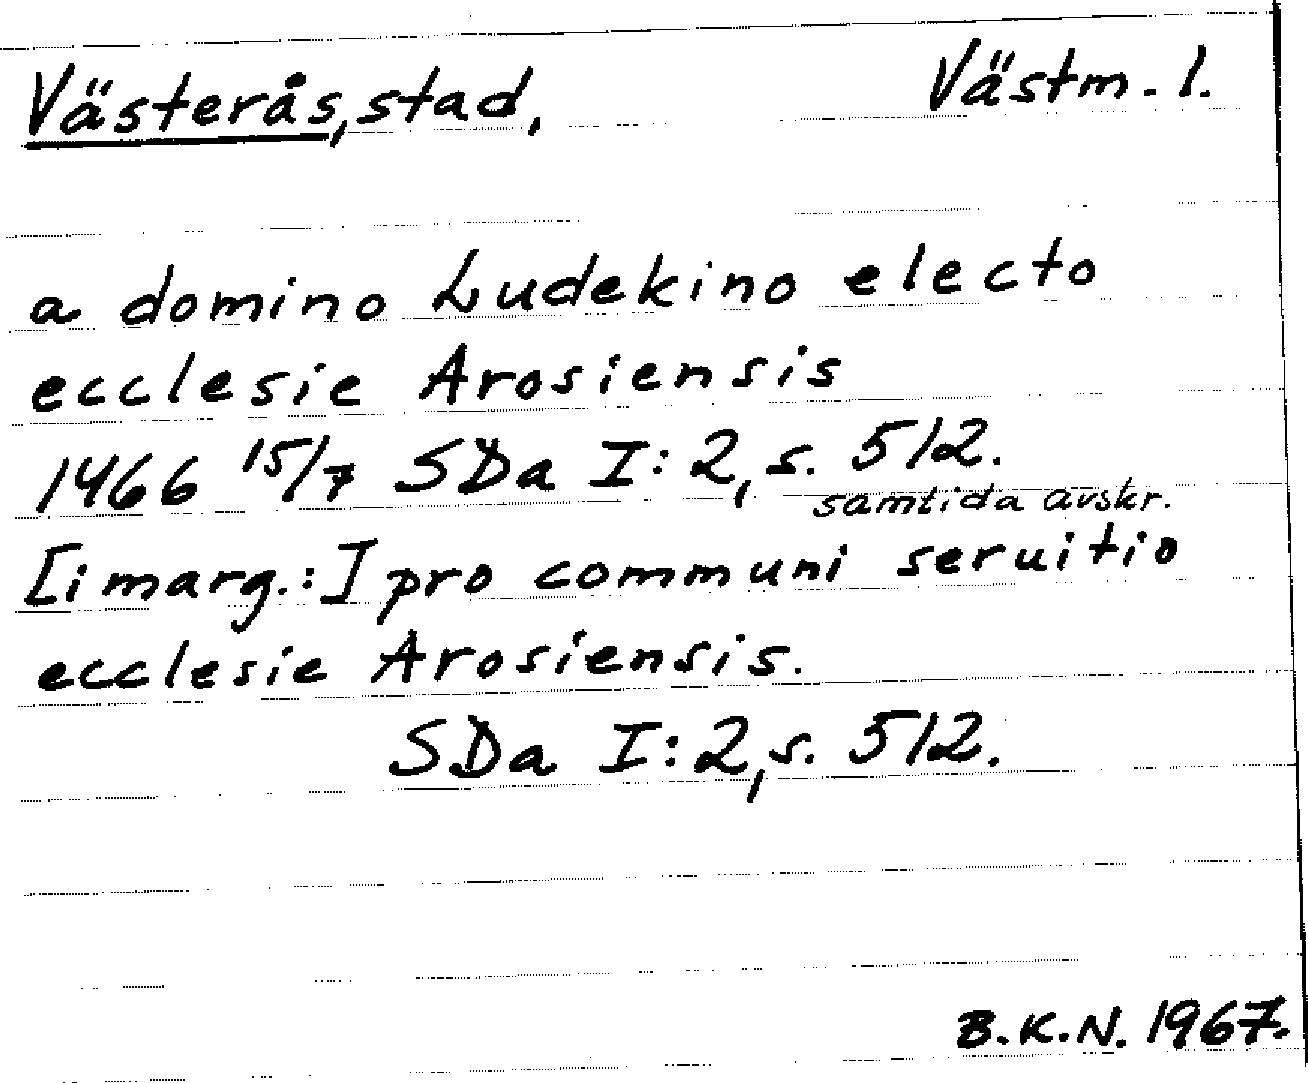 Västerås, stad, Västm. l.
a domino Ludekino electo
ecclesie Arosiensis
1466 15/7 SDa I:2, s. 512.
samtida avskr.
[i marg.:] pro communi seruitio
ecclesie Arosiensis.
SDa I:2, s. 512.
B.K.N. 1967.